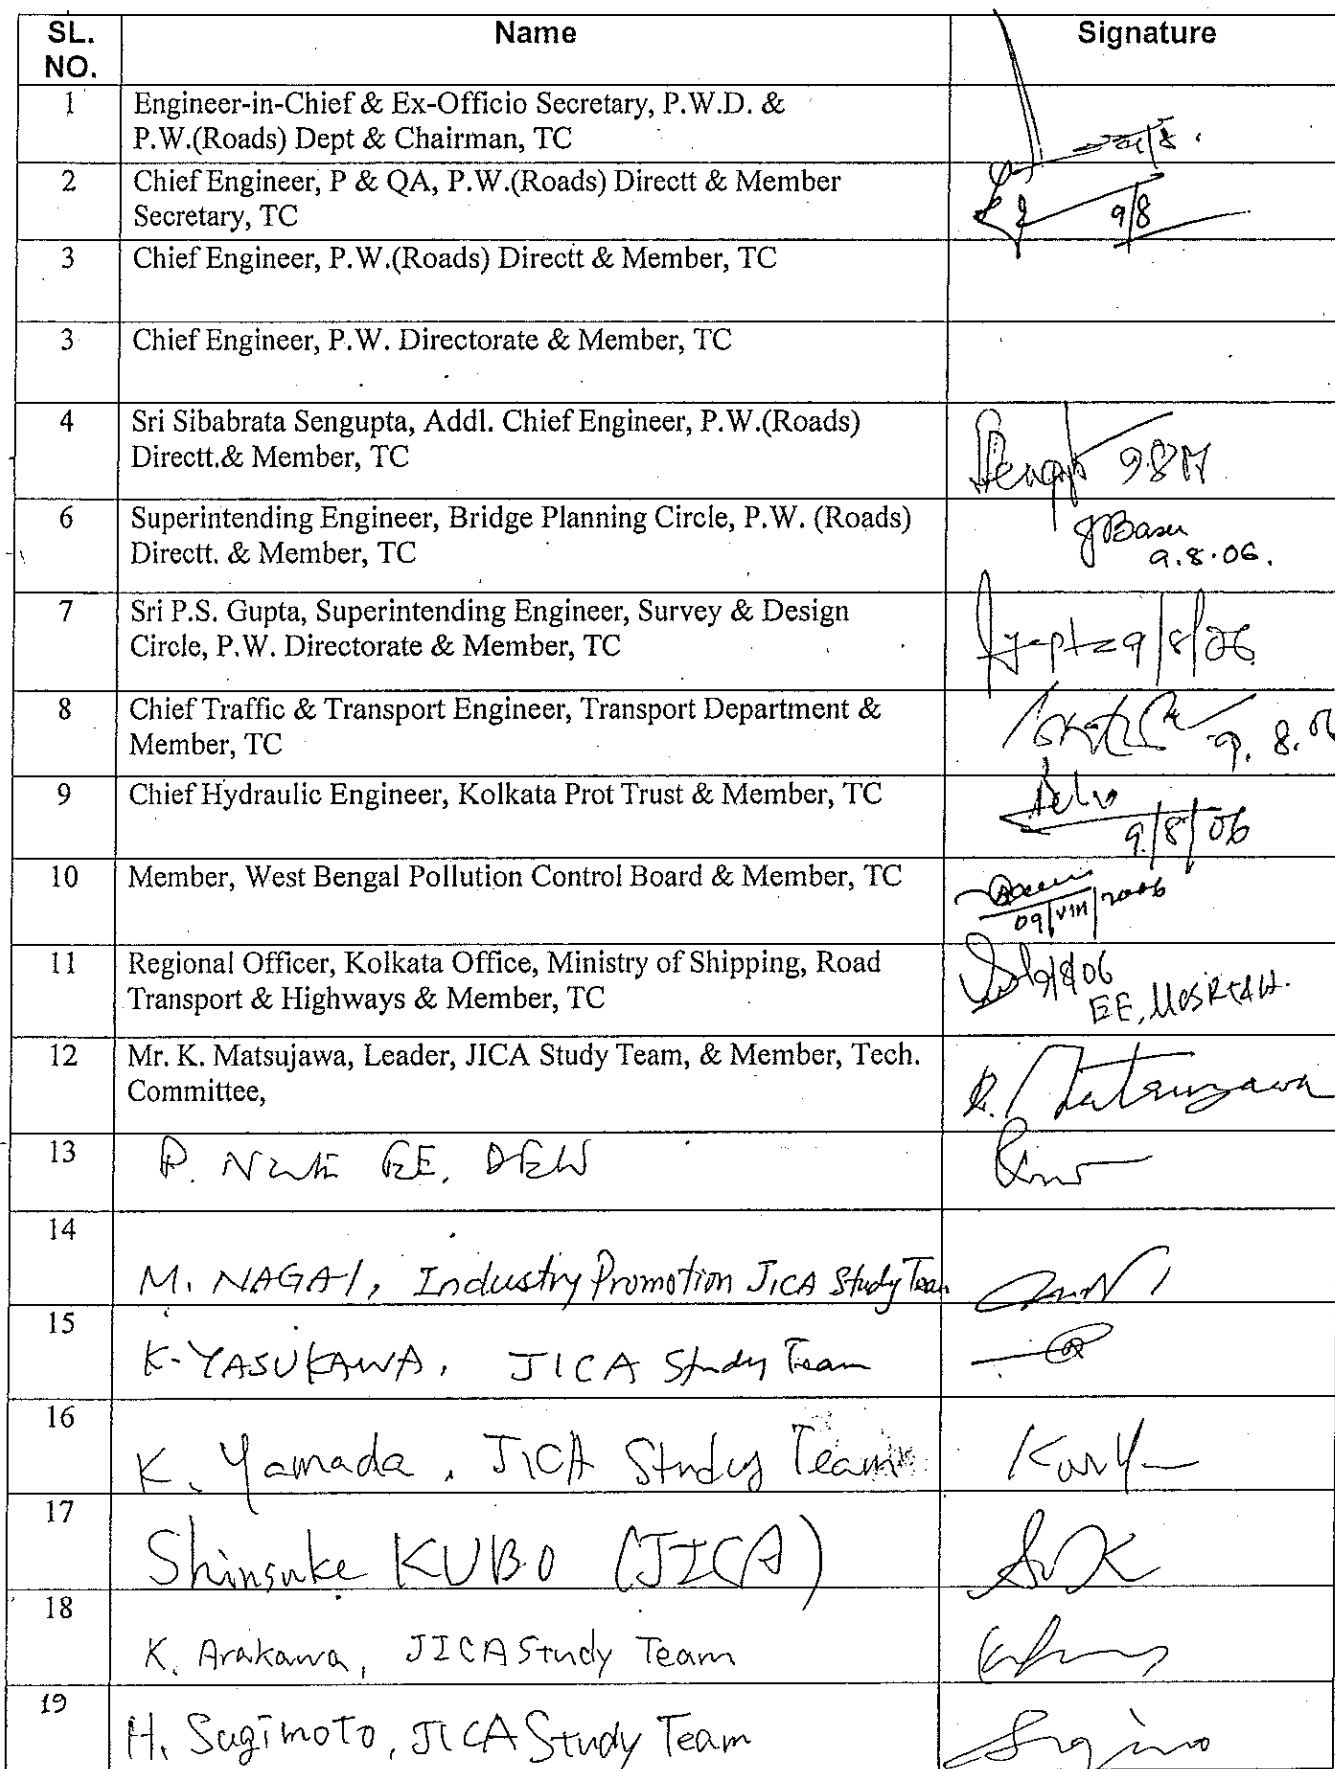 SL. NO. Name Signature
1 Engineer-in-Chief & Ex-Officio Secretary, P.W.D. &
P.W.(Roads) Dept & Chairman, TC
2 Chief Engineer, P & QA, P.W.(Roads) Directt & Member
Secretary, TC 9/8
3 Chief Engineer, P.W.(Roads) Directt & Member, TC
3 Chief Engineer, P.W. Directorate & Member, TC
4 Sri Sibabrata Sengupta, Addl. Chief Engineer, P.W.(Roads)
Directt.& Member, TC
6 Superintending Engineer, Bridge Planning Circle, P.W. (Roads)
Directt. & Member, TC Basu
9.8.06.
7 Sri P.S. Gupta, Superintending Engineer, Survey & Design
Circle, P.W. Directorate & Member, TC 9/8/06
8 Chief Traffic & Transport Engineer, Transport Department &
Member, TC 9. 8. 06
9 Chief Hydraulic Engineer, Kolkata Prot Trust & Member, TC
9/8/06
10 Member, West Bengal Pollution Control Board & Member, TC
09/VIII/2006
11 Regional Officer, Kolkata Office, Ministry of Shipping, Road
Transport & Highways & Member, TC 9/8/06
EE,
12 Mr. K. Matsujawa, Leader, JICA Study Team, & Member, Tech.
Committee, K. Matsuzawa
13 P. EE.
14 M. NAGAI, Industry Promotion JICA Study Team
15 K. YASUKAWA, JICA Study Team
16 K. Yamada, JICA Study Team
17 Shinsuke KUBO (JICA)
18 K. Arakawa, JICA Study Team
19 H. Sugimoto, JICA Study Team